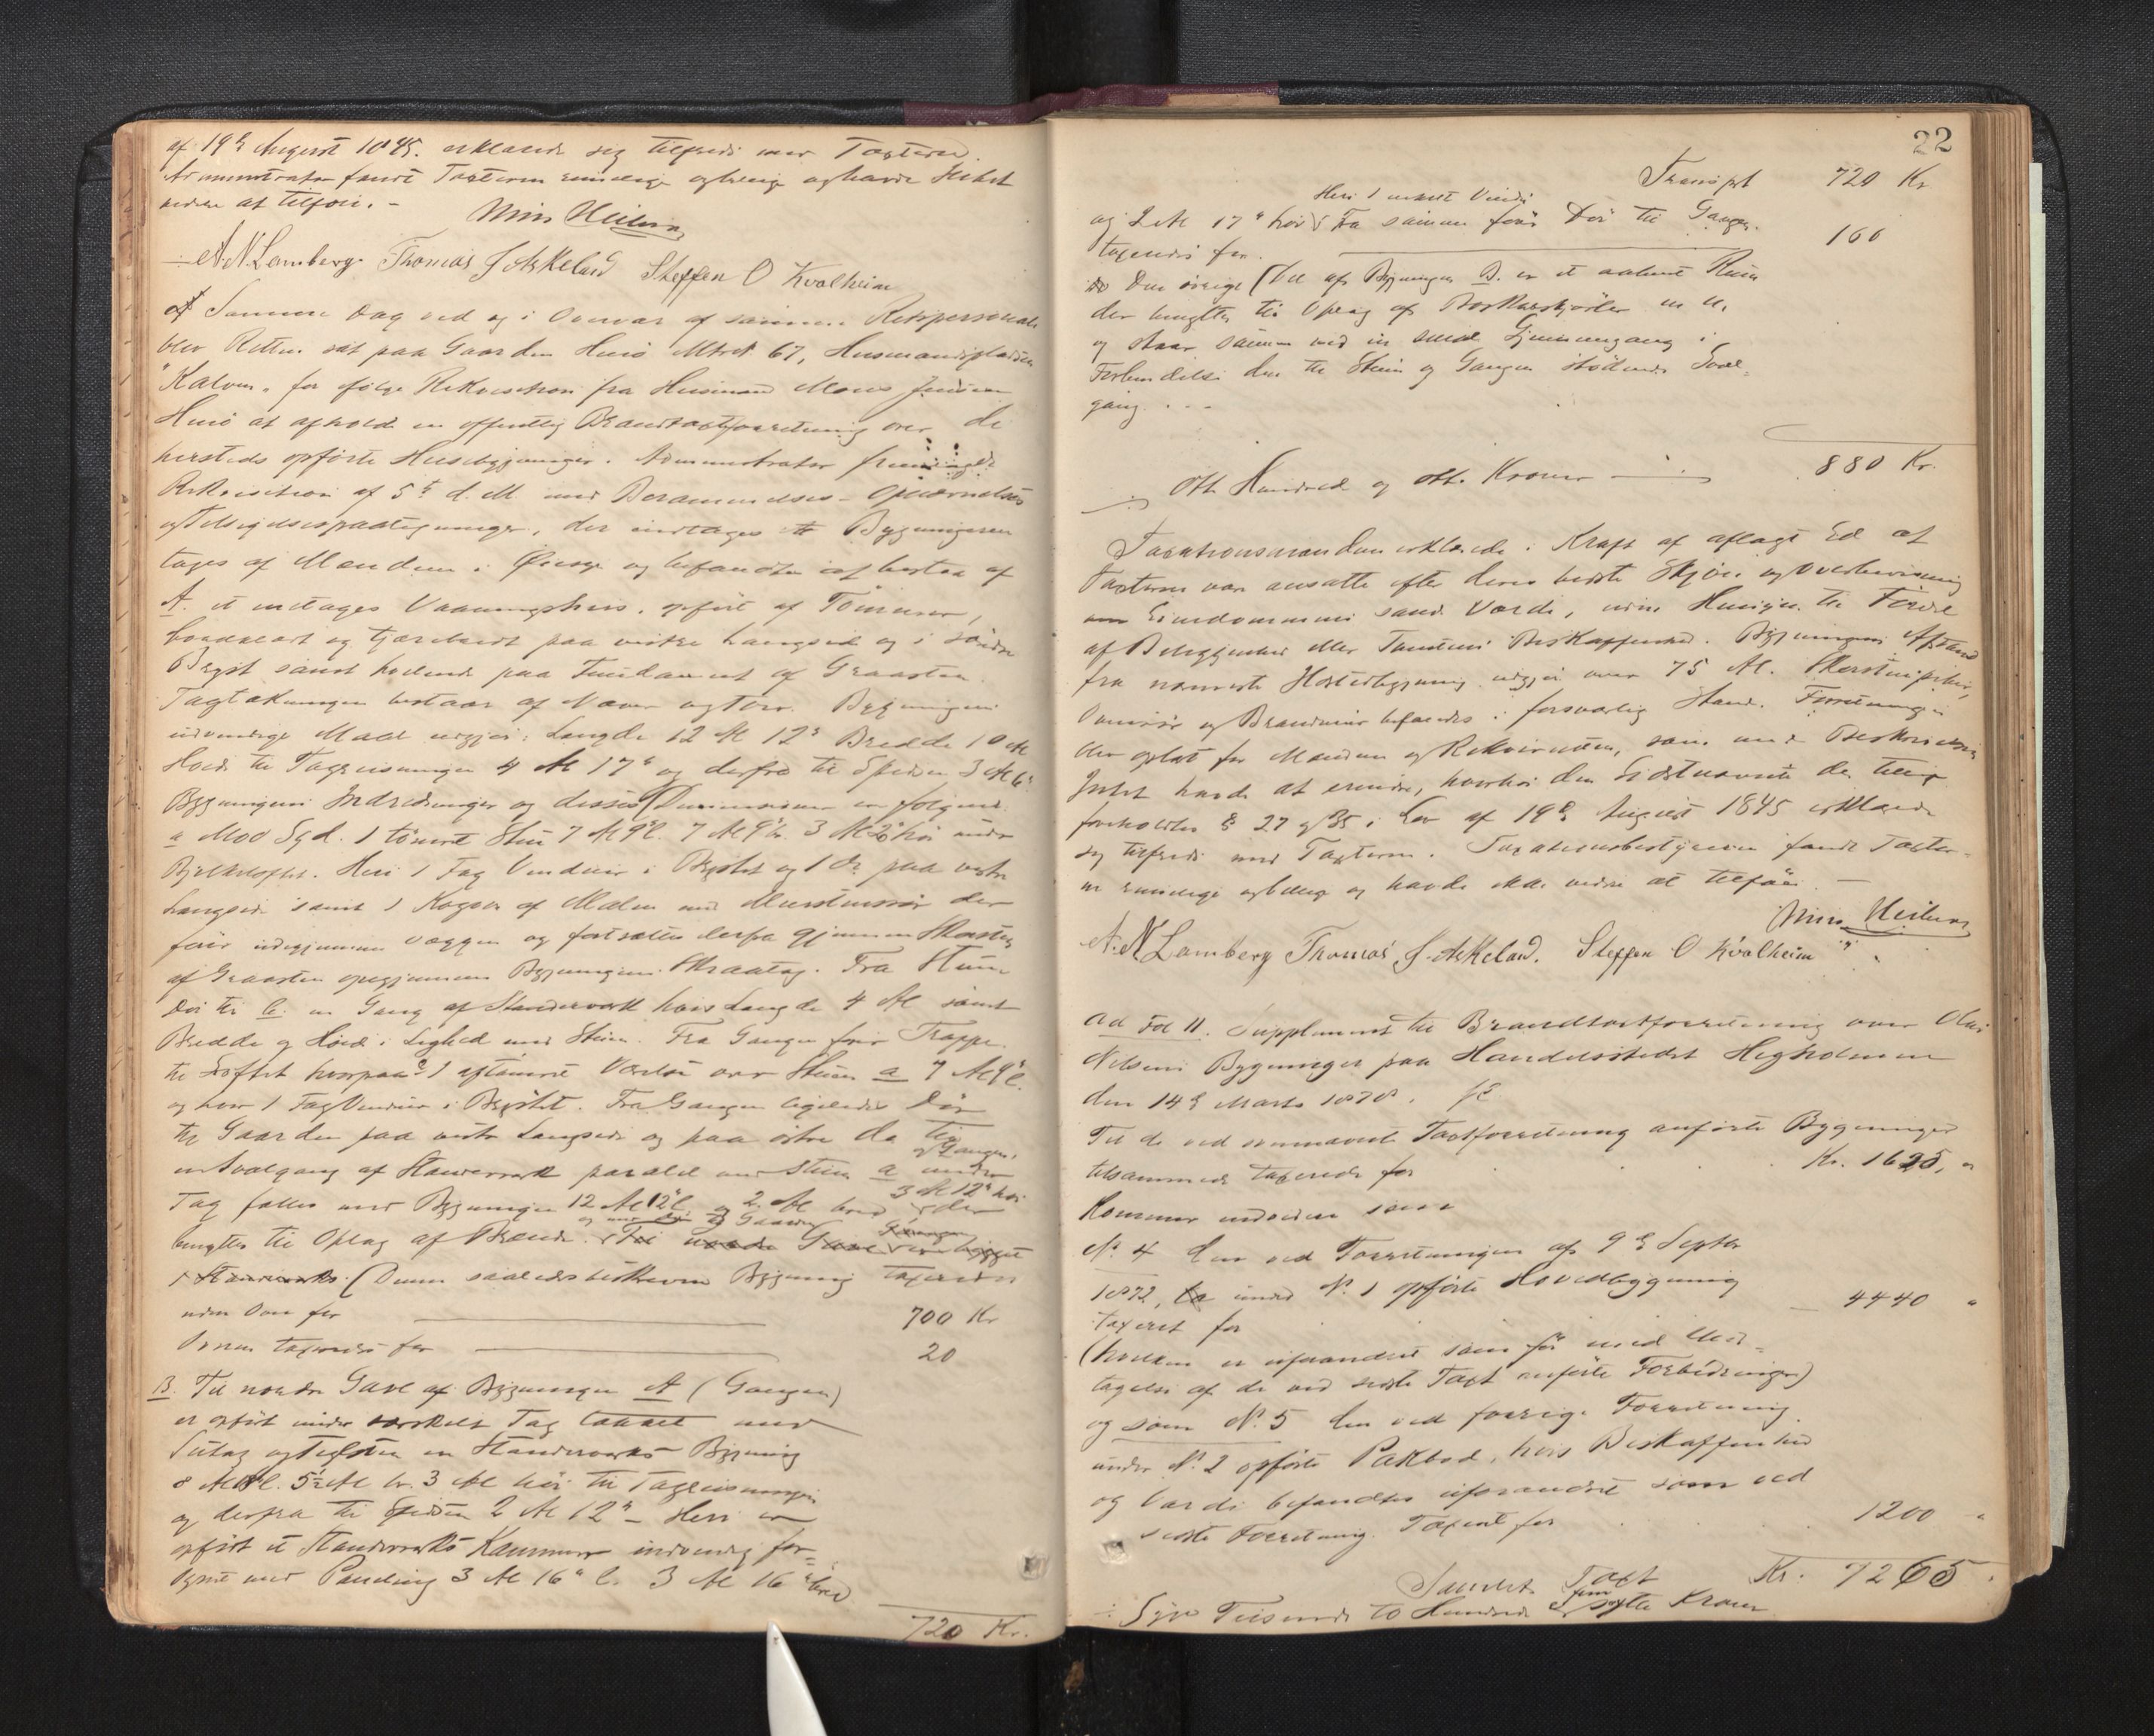 af 19de August 1845. erklærede sig tilfreds med Taxterne.
Administrator fandt Taxterne rimelige og billige og havde Intet
videre at tilføie. -
A. N. Lamberg. Thomas J Askeland Steffen O Kvalheim
Samme Dag ved og i Overvær af samme Retspersonale
blev Retten sat paa Gaarden Husø Mtrd 67, Husmandspladsen
"Kalven" for ifølge Rekvisition fra Husmand Mons
Husø at afholde en offentlig Brandtaxtforretning over de
hersteds opførte Husebygninger. Administrator fremlagde
Rekvisition af 5te d. M. med Berammelses- Opnævnelses
og Tilsigelsespaategninger, der indtages Bygningerne
toges af Mændene i Øiesyn og befandtes at bestaa af
A. et Vaaningshus, opført af Tømmer,
bordklædt og tjærebredt paa vestre Langside og i søndre
Bryst samt hvilende paa Fundament af Graasten.
Tagtækningen bestaar af Næver og Torv. Bygningens
udvendige Maal udgjør: Længde 12 Al 12" Bredde 10 Al
Høide til Tagreisningen 4 Al 17" og derfra til Spidsen 3 Al 6"
Bygningens Indredninger og disses Dimensioner er følgende:
a Mod Syd. 1 tømret Stue 7 Al 9" l. 7 Al 9" br. 3 Al 2" høi under
Bjelkeloftet. Heri 1 Fag Vinduer i Brystet og 1 do paa vestre
Langside samt 1 Kogeovn af Malm med Murstensrør der
fører udigjennem Væggen og fortsættes derfra gjennem Skorsten
af Graasten opigjennem Bygningens Skraatag. Fra Stuen
Dør til b. en Gang af Standerværk hvis Længde 4 Al samt
Bredde og Høide i Lighed med Stuen. Fra Gangen fører Trappe
til Loftet hvorpaa 1 aftømret Værelse over Stuen a 7 Al 9" l.
og hvor 1 Fag Vinduer i Brystet. Fra Gangen ligeledes Dør
til Gaarden paa vestre Langside og paa østre do til
en Svalgang af Standerværk parallel med Stuen a og Gangen, under
Tag fælles med Bygningen 12 Al 12" l. og 2 Al bred 3 Al 12" høi der
benyttes til Oplag af Brænde.
Denne saaledes beskrevne Bygning taxeredes
uden Ovn for 700 Kr
Ovnen taxeredes for 20
B. Til nordre Gavl af Bygningen A (Gangen)
er opført under særskilt Tag tækket med
Sutag og Teglsten en Standerværks Bygning
8 Al l. 5½ Al br. 3 Al høi til Tagreisningen
og derfra til Spidsen 2 Al 12" - Heri er
opført et Standerværks Kammer indvendig for-
synet med Paneling 3 Al 16" l. 3 Al 16" bred
720 Kr.
22
Transport 720 Kr.
Heri 1 Vindu
og 2 Al 17" høi Fra samme fører Dør til Gangen.
taxeredes for. 160
Den øvrige Del af Bygningen B. er et aabent Rum
der benyttes til Oplag af Fiskeredskaber m. v.
og staar samme ved en smal Gjennemgang i
Forbindelse den til Stuen og Gangen stødende Sval-
gang. . . -
880 Kr.
Otte Hundrede og otti Kroner
Taxationsmændene erklærede i Kraft af aflagt Ed at
Taxterne var ansatte efter deres bedste Skjøn og Overbevisning
om Eiendommens sande Værdi, uden Hensyn til Fordel
af Beliggenhed eller Tomtens Beskaffenhed. Bygningens Afstand
fra nærmeste Husebygning udgjør over 75 Al. Skorstenspiber,
Ovnsrør og Brandmur befandtes i forsvarlig Stand. Forretningen
blev oplæst for Mændene og Rekvirenten, som mod Beskrivelsen
Intet havde at erindre, hvorhos den Sidstnævnte der tillige
foreholdtes § 27 og 35 i Lov af 19de August 1845 erklærede
sig tilfreds med Taxterne. Taxationsbestyreren fandt Taxter-
ne rimelige og billige og havde ikke videre at tilføie. -
A. N Lamberg Thomas J. Askeland. Steffen O Kvalheim
Ad Fol 11. Supplement til Brandtaxtforretning over Ole
Nilsens Bygninger paa Handelsstedet Hegholmen
den 14de Marts 1878.
Til de ved ovennævnte Taxtforretning anførte Bygninger
tilsammen taxerede for Kr. 1625, "
Kommer endvidere som
No 4 den ved Forretningen af 9de Septbr
1873, under No 1 opførte Hovedbygning
taxeret for 4440 "
(hvilken er uforandret som før med Und-
tagelse af de ved sidste Taxt anførte Forbedringer)
og som No 5 den ved forrige Forretning
under No 2 opførte Pakbod, hvis Beskaffenhed
og Værdi befandtes uforandret som ved
sidste Forretning. Taxeret for 1200 "
Samlet Taxt Kr. 7265.
Syv Tusinde to Hundrede fem og sexti Kroner